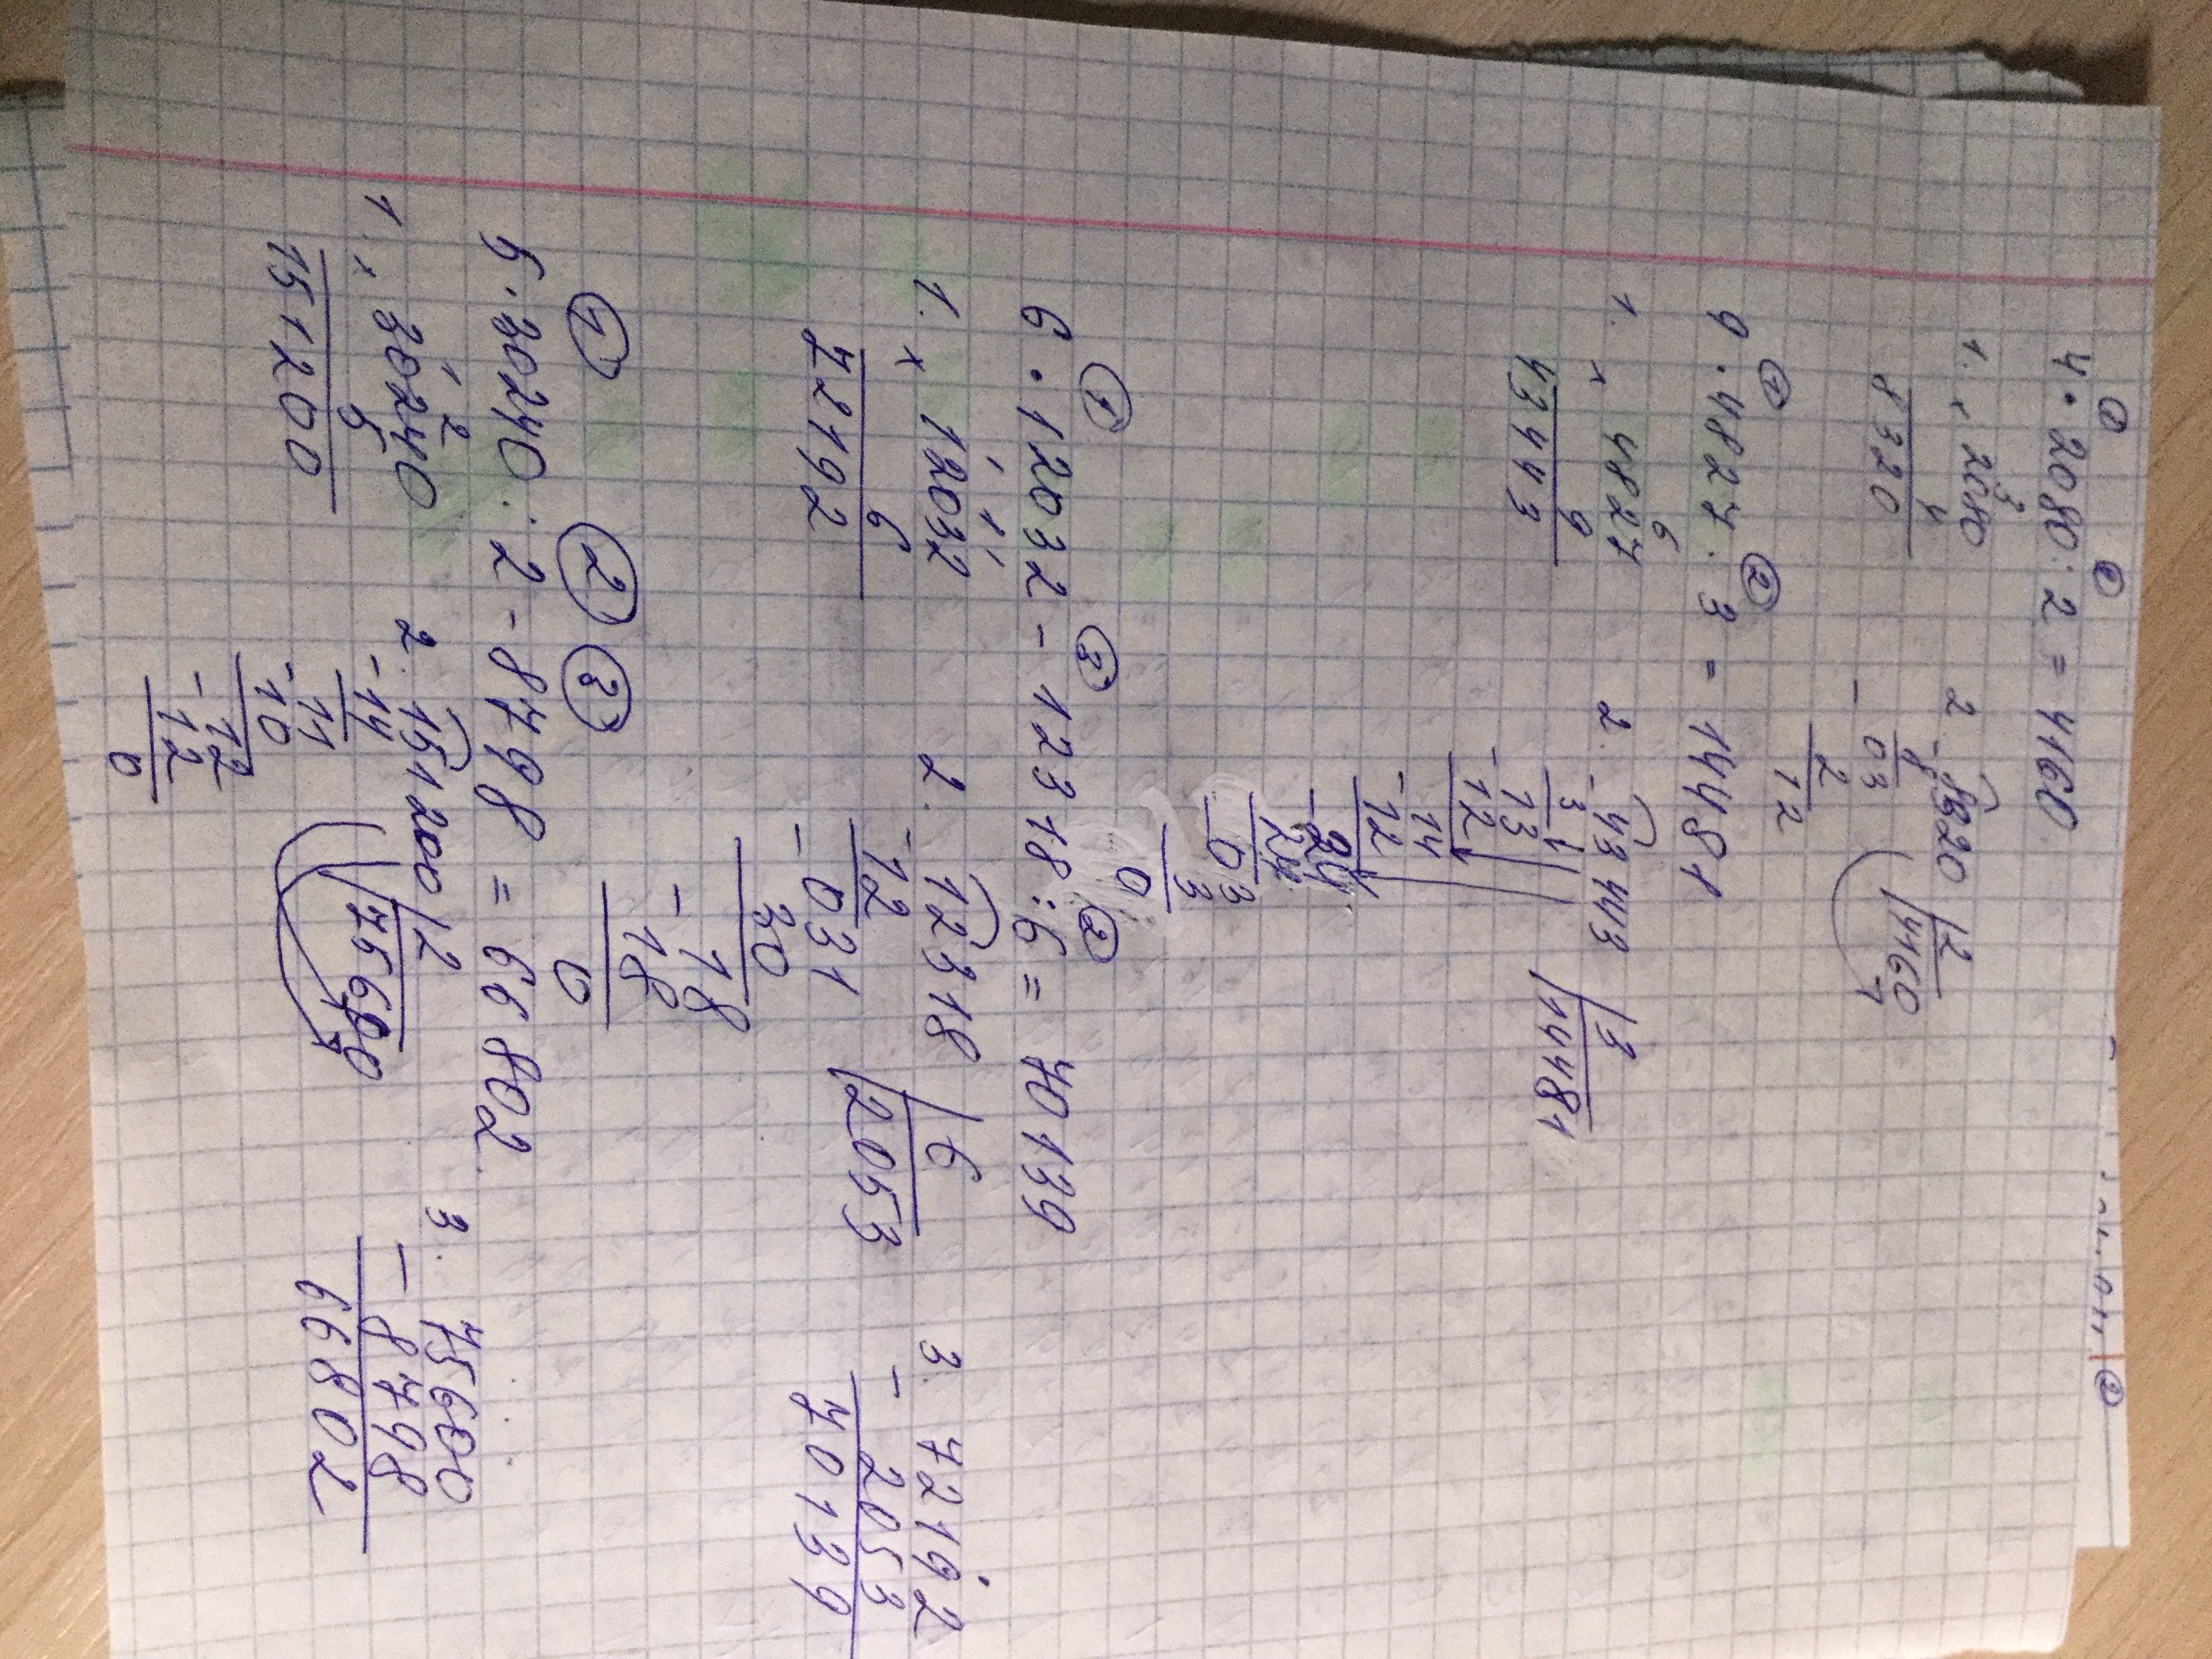 ① ②
4 · 2080 : 2 = 4160
1. × 2080 2. - 8320 | 2
3
4 8 4160
8320 - 03
2
12
① ②
9 · 4827 : 3 = 14481
6
1. × 4827 2. - 43443 | 3
9 3 14481
43443 - 13
12
- 14
12
- 24
24
- 03
3
0
① ③ ②
6 · 12032 - 12318 : 6 = 70139
1 1 1
1. × 12032 2. - 12318 | 6 3. - 72192
6 12 2053 2053
72192 - 031 70139
30
- 18
18
0
① ② ③
5 · 30240 : 2 - 8798 = 66802
1 2
1. × 30240 2. - 151200 | 2 3. - 75600
5 14 75600 8798
151200 - 11 66802
10
- 12
12
0